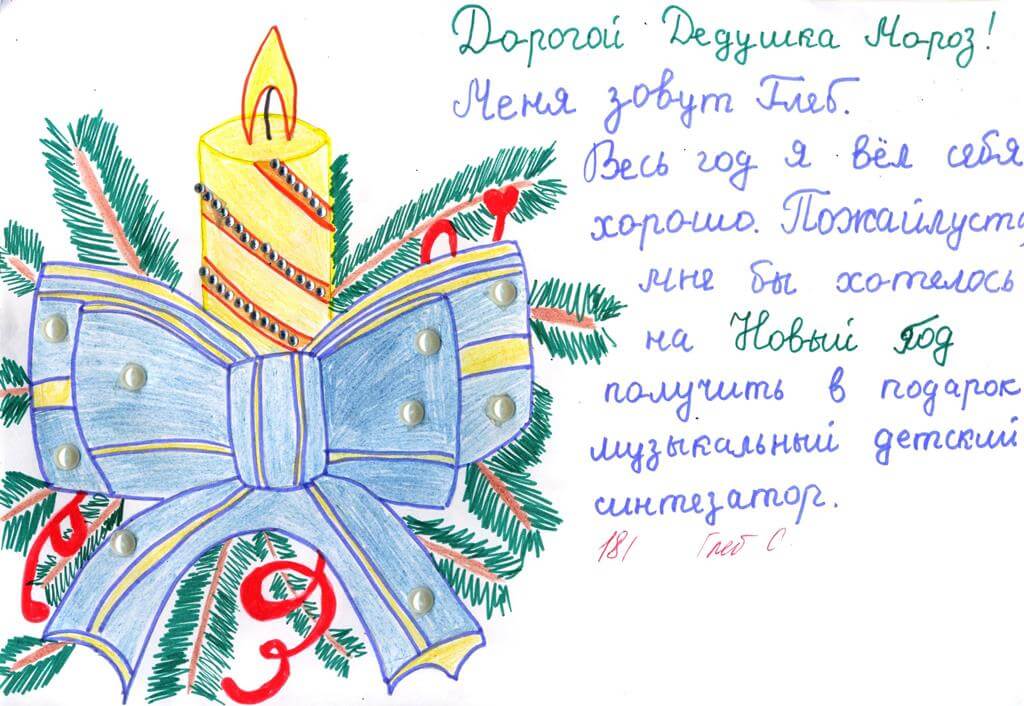 Дорогой Дедушка Мороз!
Меня зовут Глеб.
Весь год я вёл себя
хорошо. Пожайлуста
мне бы хотелось
на Новый год
получить в подарок
музыкальный детский
синтезатор.
181 Глеб С.